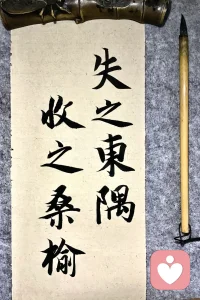 失之東隅
收之桑榆